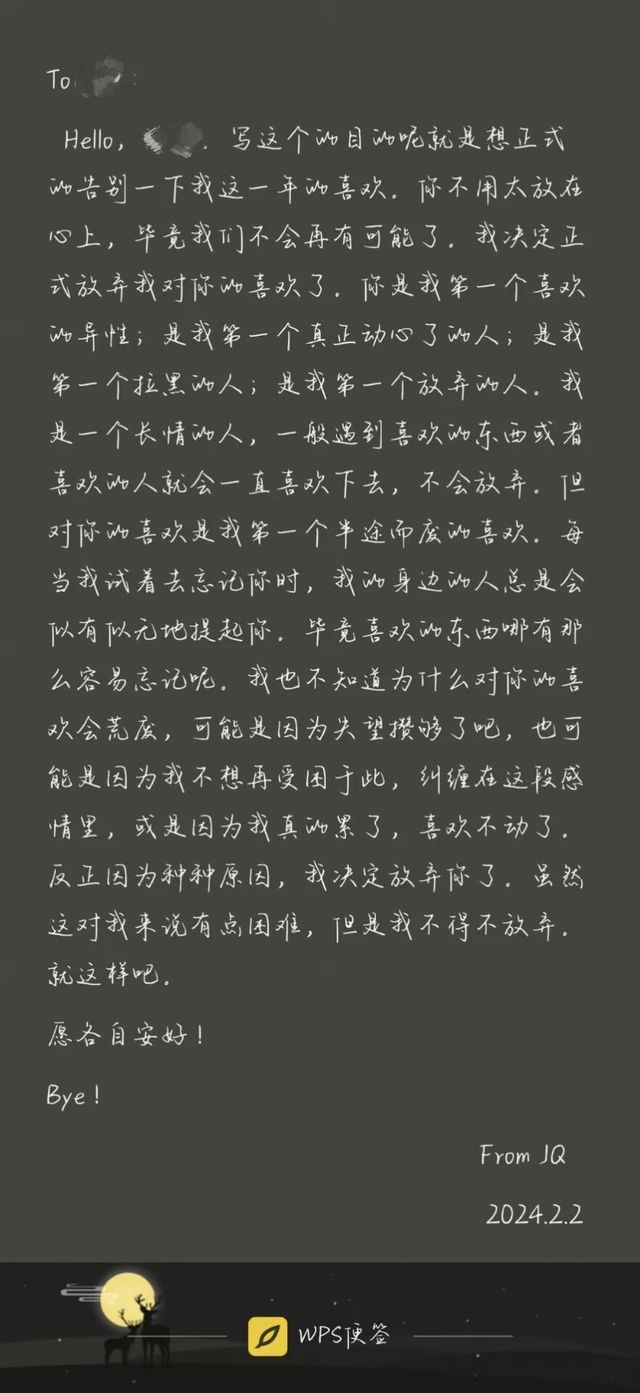 To :
Hello, . 写这个的目的呢就是想正式
的告别一下我这一年的喜欢. 你不用太放在
心上, 毕竟我们不会再有可能了. 我决定正
式放弃我对你的喜欢了. 你是我第一个喜欢
的异性; 是我第一个真正动心了的人; 是我
第一个拉黑的人; 是我第一个放弃的人. 我
是一个长情的人, 一般遇到喜欢的东西或者
喜欢的人就会一直喜欢下去, 不会放弃. 但
对你的喜欢是我第一个半途而废的喜欢. 每
当我试着去忘记你时, 我的身边的人总是会
似有似无地提起你. 毕竟喜欢的东西哪有那
么容易忘记呢. 我也不知道为什么对你的喜
欢会荒废, 可能是因为失望攒够了吧, 也可
能是因为我不想再受困于此, 纠缠在这段感
情里, 或是因为我真的累了, 喜欢不动了.
反正因为种种原因, 我决定放弃你了. 虽然
这对我来说有点困难, 但是我不得不放弃.
就这样吧.
愿各自安好!
Bye!
From JQ
2024.2.2
WPS便签